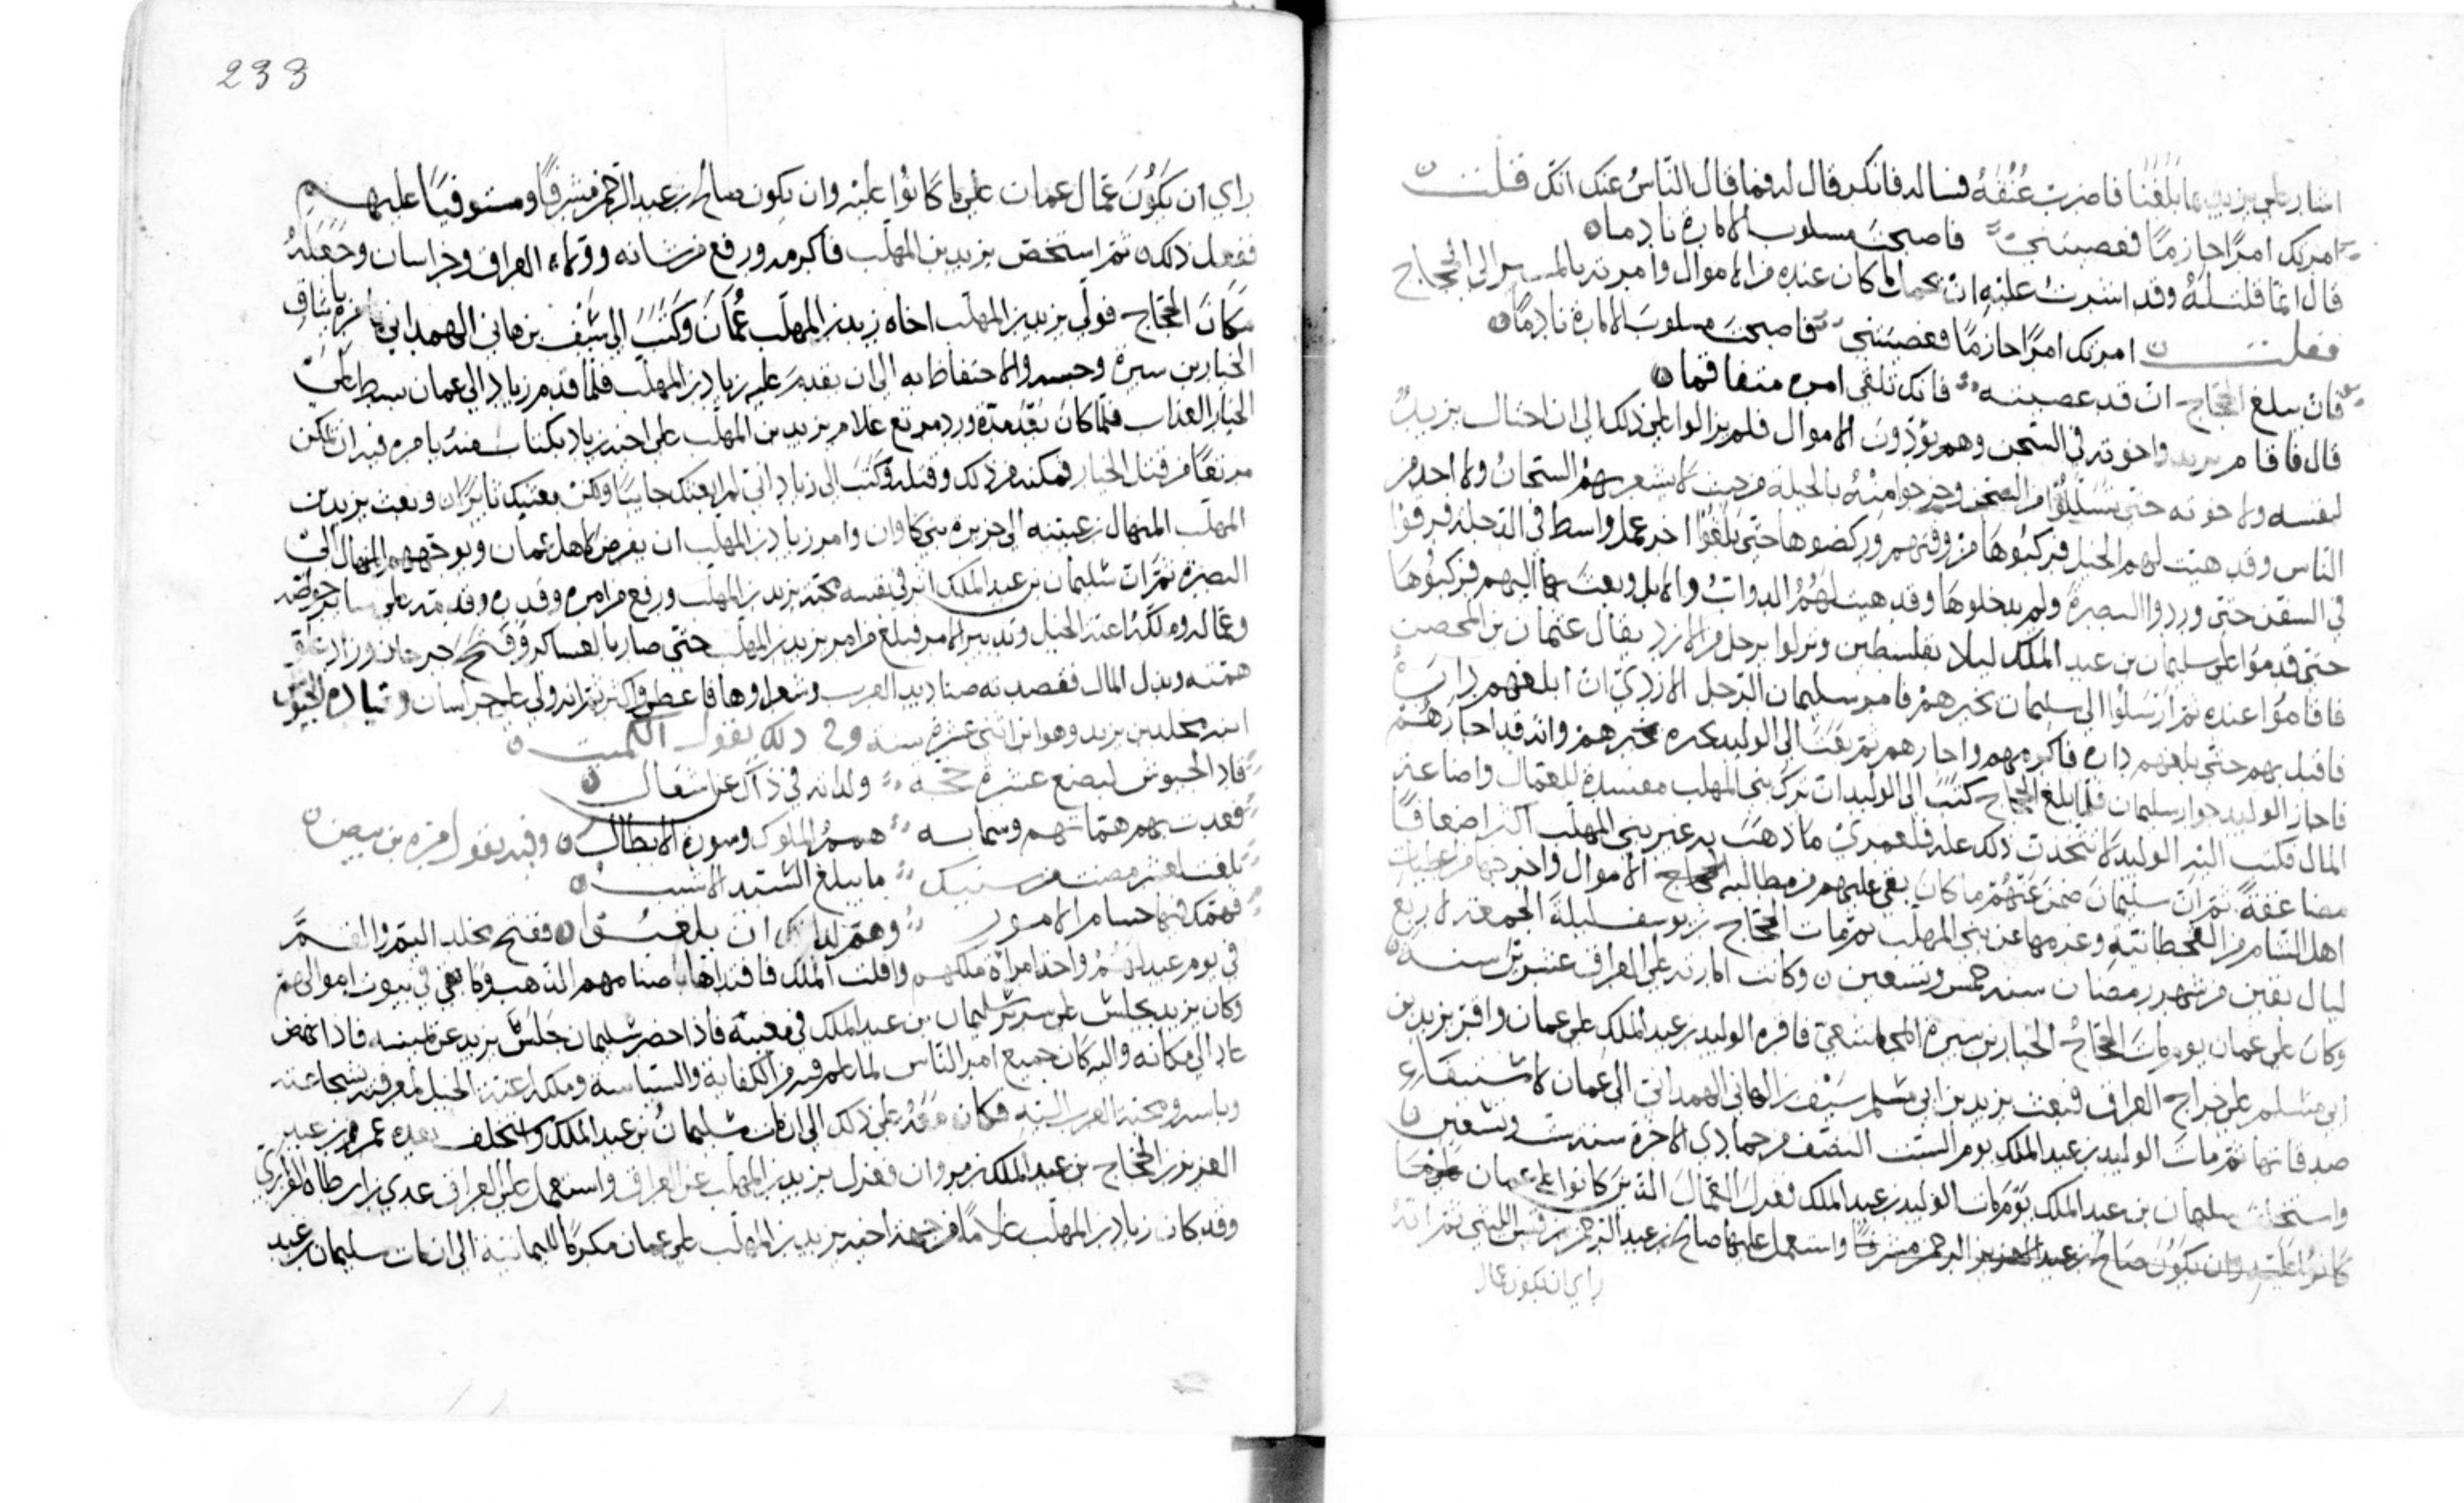 اشار على يزيد بما بلغنا فاضرب عنقه فساله فانكر قال له فما قال الناس عنك انك قلت
امرتك امرا حازما فعصيتني فاصبحت مسلوب الامارة نادما
قال انما قلت له وقد اشرت عليه ان ما كان عنده من الاموال وامرته بالمسير الى الحجاج
فقلت امرتك امرا حازما فعصيتني فاصبحت مسلوب الامارة نادما
فان يبلغ الحجاج ان قد عصيته فانك تلقى امره متفاقما
قال فاقام يزيد واخوته في السجن وهم يؤدون الاموال فلم يزالوا على ذلك الى ان احتال يزيد
لنفسه ولاخوته حتى تسللوا من السجن وخرجوا منه بالحيلة من حيث لا يشعر بهم السجان ولا احد من
الناس وقد هيئت لهم الخيل فركبوها من وقتهم وركضوها حتى بلغوا اخر عمل واسط في الدجلة فرقوا
في السفن حتى وردوا البصرة ولم يدخلوها وقد هيئت لهم الدواب والابل وبعث بها اليهم فركبوها
حتى قدموا على سليمان بن عبد الملك ليلا بفلسطين ونزلوا برجل من الازد يقال عثمان بن المحصن
فاقاموا عنده ثم ارسلوا الى سليمان بخبرهم فامر سليمان الرجل الازدي ان ابلغهم داره
فاقبل بهم حتى بلغهم داره فاكرمهم واجارهم ثم بعث الى الوليد يخبره بخبرهم وانه قد اجارهم
فاجاز الوليد جوار سليمان فلما بلغ الحجاج كتب الى الوليد ان ترك بني المهلب مفسدة للعمال واضاعة
المال فكتب اليه الوليد لا تتحدث ذلك عليه فلعمري ما ذهب به غير بني المهلب اكثر اضعافا
مضاعفة ثم ان سليمان ضمن عنهم ما كان بقي عليهم من مطالبه الحجاج الاموال واخرجها من اعطيات
اهل الشام من القحطانية وغرمها عن بني المهلب ثم مات الحجاج بن يوسف ليلة الجمعة لاربع
ليال بقين من شهر رمضان سنة خمس وتسعين وكانت امارته على العراق عشرين سنة
وكان على عمان يوم مات الحجاج الخيار بن سبرة المجاشعي فاقره الوليد بن عبد الملك على عمان واقر يزيد بن
ابي مسلم على خراج العراق فبعث يزيد بن ابي مسلم سيف بن الهاني الهمداني الى عمان لاستيفاء
صدقاتها ثم مات الوليد بن عبد الملك يوم السبت النصف من جمادى الاخرة سنة ست وتسعين
واستخلف سليمان بن عبد الملك يوم مات الوليد بن عبد الملك فعزل العمال الذين كانوا على عمان
كانوا عليه وان يكون صالح بن عبد العزيز الرحمن مشرفا واستعمل عليها صالح بن عبد الرحمن بن قيس الليثي ثم انه
راي ان يكون عمال
233
راي ان يكون عمال عمان على ما كانوا عليه وان يكون صالح بن عبد الرحمن مشرفا ومستوفيا عليهم
ففعل ذلك ثم استخص يزيد بن المهلب فاكرمه ورفع من شانه وولاه العراق وخراسان وجعله
مكان الحجاج فولى يزيد بن المهلب اخاه زياد بن المهلب عمان وكتب الى سيف بن هاني الهمداني
الخيار بن سبرة وحبسه والاحتفاظ به الى ان يقدم عليه زياد بن المهلب فلما قدم زياد الى عمان بسط على
الخيار العذاب فلما كان بعد مدة ورد غلام يزيد بن المهلب على اخيه زياد بكتاب منه يامره فيه ان يمكن
من قتل الخيار فمكنه من ذلك وقتله وكتب الى زياد اني لم ابعثك جابيا ولكن بعثتك ثائرا وبعث يزيد بن
المهلب المنهال بن عيينه الى جزيرة بني كاوان وامر زياد بن المهلب ان يفرض لاهل عمان ويوجههم الى المنهال الى
البصرة ثم ان سليمان بن عبد الملك اثر في نفسه محبة يزيد بن المهلب ورفع من امره وقدره وقدمه على سائر
وعماله وملكه اعنة الخيل وتدبير الامر فبلغ من امر يزيد بن المهلب حتى صار بالعساكر وفتح جرجان وزاد
همته وبذل المال فقصدته صناديد العرب وشعراوها فاعطى واكثر ثم انه ولى على خراسان وقيادة الجيوش
ابنه مخلد بن يزيد وهو ابن اثني عشرة سنة وفي ذلك يقول الكميت
قاد الجيوش لبضع عشرة حجة ولداته في ذاك عن اشغال
قعدت بهم هماتهم وسمابه همم الملوك وسورة الابطال وفيه يقول حمزة بن بيض
بلغت لعشر مضت من سنيك ما يبلغ السيد الاشيب
فهمك فيها جسام الامور وهم لداتك ان يلعبوا ففتح مخلد
في يوم عيد لهم واخذ امراة ملكهم وافلت الملك فافتداها باصنامهم الذهب وكانت هي في بيوت اموالهم
وكان يزيد يجلس على سرير سليمان بن عبد الملك في مغيبه فاذا حضر سليمان جلس يزيد عن يمينه فاذا نهض
عاد الى مكانه واليه كان جميع امر الناس لما علم فيه من الكفاية والسياسة وملكه اعنة الخيل لمعرفته بشجاعته
وباسه ومحبة العرب اليه فكان معه على ذلك الى ان مات سليمان بن عبد الملك واستخلف بعده عمر بن عبد
العزيز بن الحجاج بن عبد الملك بن مروان فعزل يزيد بن المهلب عن العراق واستعمل على العراق عدي بن ارطاه الفزاري
وقد كان زياد بن المهلب غلاما من جهة اخيه يزيد بن المهلب على عمان مكرما لليمانية الى ان مات سليمان بن عبد